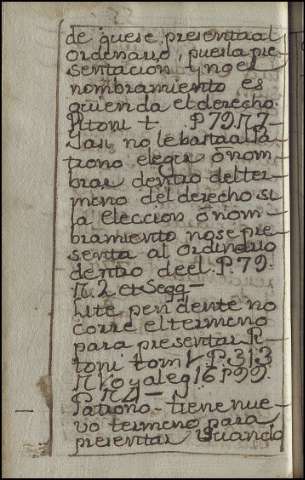 de quese presenta al
ordenario, pues la pre
sentacion y no el
nombramiento es
quien da el derecho.
Pitoni t P79.N.7-
Iasi no le basta al Pa
trono elegir ô nom
brar dentro del ter
meno del derecho si
la eleccion ô nom
bramiento no se pre
senta al ordinario
dentro de el. P.79.
N.2 et Segg-
Lite pendente no
corre el termeno
para presentar P
toni tom 1 P.313
N 10 y aleg 16 P99.
P N 4-
Patrono- tiene nue
vo termeno para
presentar quando